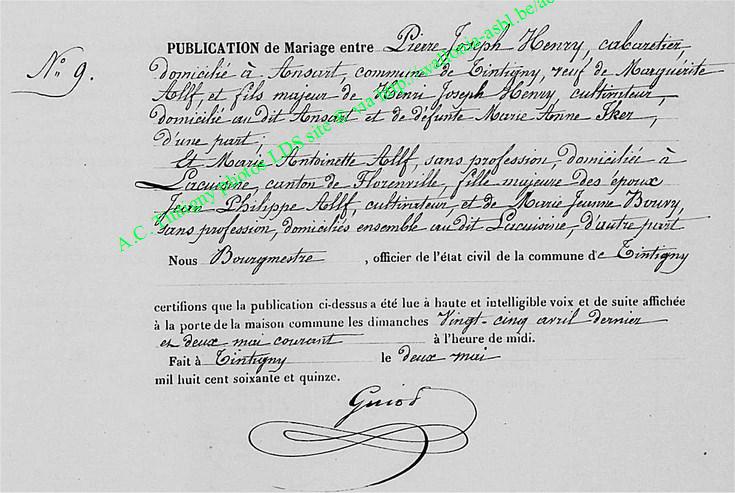 N° 9.
PUBLICATION de Mariage entre Pierre Joseph Henry, cabaretier,
domicilié à Ansart, commune de Tintigny, veuf de Marguerite
Allf, et fils majeur de Henri Joseph Henry, cultivateur,
domicilié au dit Ansart et de défunte Marie Anne Iker,
d'une part;
Et Marie Antoinette Allf, sans profession, domiciliée à
Lacuisine, canton de Florenville, fille majeure des époux
Jean Philippe Allf, cultivateur et de Marie Jeanne Bouvy,
sans profession, domiciliés ensemble au dit Lacuisine, d'autre part
Nous Bourgmestre, officier de l'état civil de la commune de Tintigny
certifions que la publication ci-dessus a été lue à haute et intelligible voix et de suite affichée
à la porte de la maison commune les dimanches Vingt-cinq avril dernier
et deux mai courant à l'heure de midi.
Fait à Tintigny le deux mai
mil huit cent soixante et quinze.
A.C. Tintigny photos LDS site via http://wallonia-asbl.be/ac